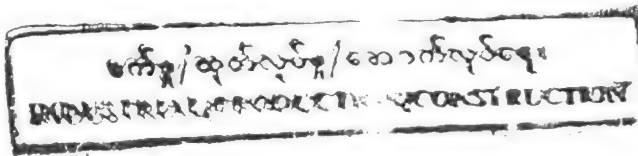 စက်မှု/ထုတ်လုပ်မှု/ဆောက်လုပ်ရေး
INDUSTRIAL/PRODUCTION/CONSTRUCTION